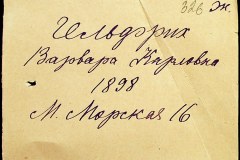 326 Ж.
Гельдфрих
Варвара Карловна
1898
М. Морская 16